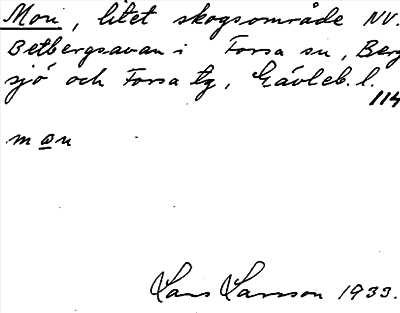 Mon, litet skogsområde NV.
Betbergsavan i Forsa sn, Berg
sjö och Forsa tg, Gävleb. l.
114
mon
Lars Larsson 1933.